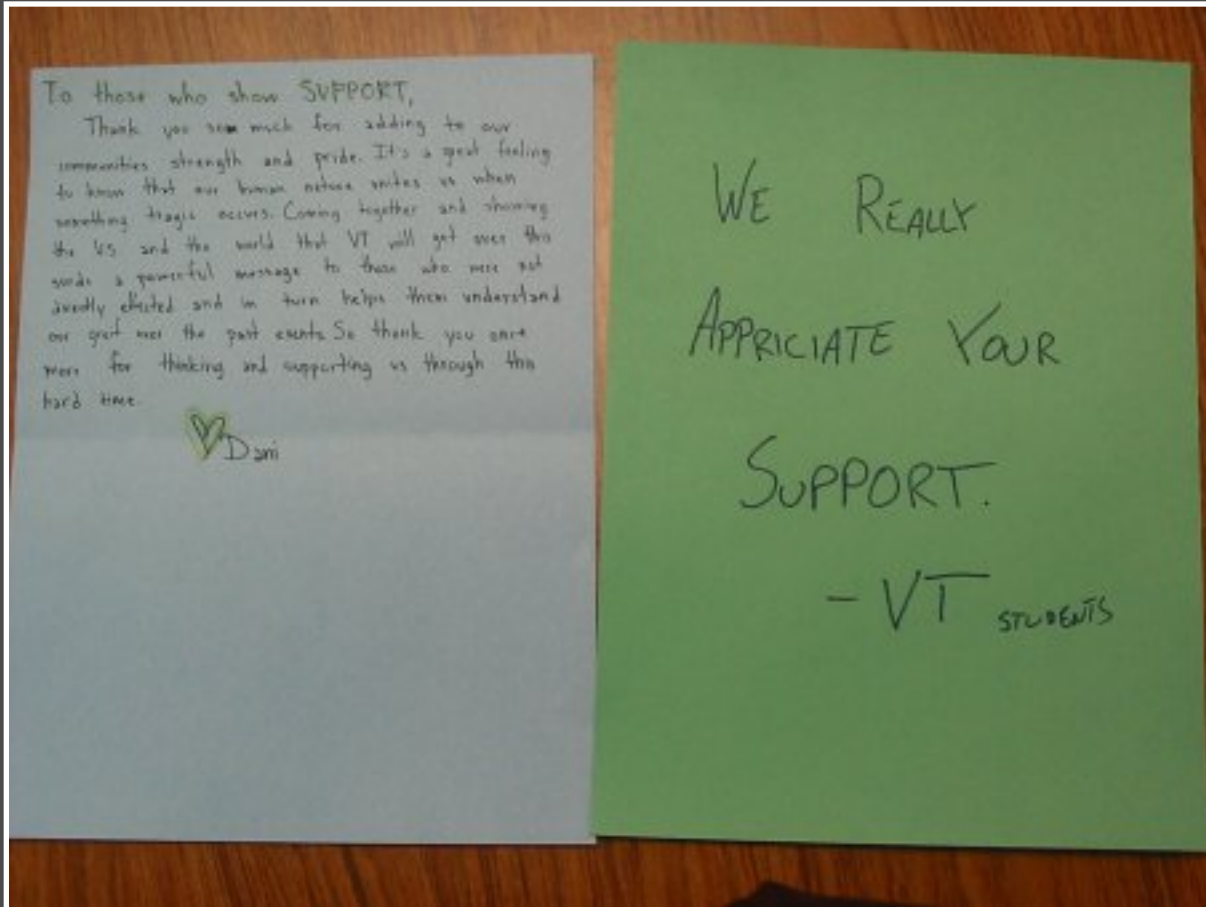 To those who show SUPPORT,
Thank you so much for adding to our
communities strength and pride. It's a great feeling
to know that our human nature unites us when
something tragic occurs. Coming together and showing
the US and the world that VT will get over this
sends a powerful message to those who were not
directly effected and in turn helps them understand
our grief over the past events. So thank you once
more for thinking and supporting us through this
hard time.
Dani
WE REALLY
APPRICIATE YOUR
SUPPORT.
- VT STUDENTS